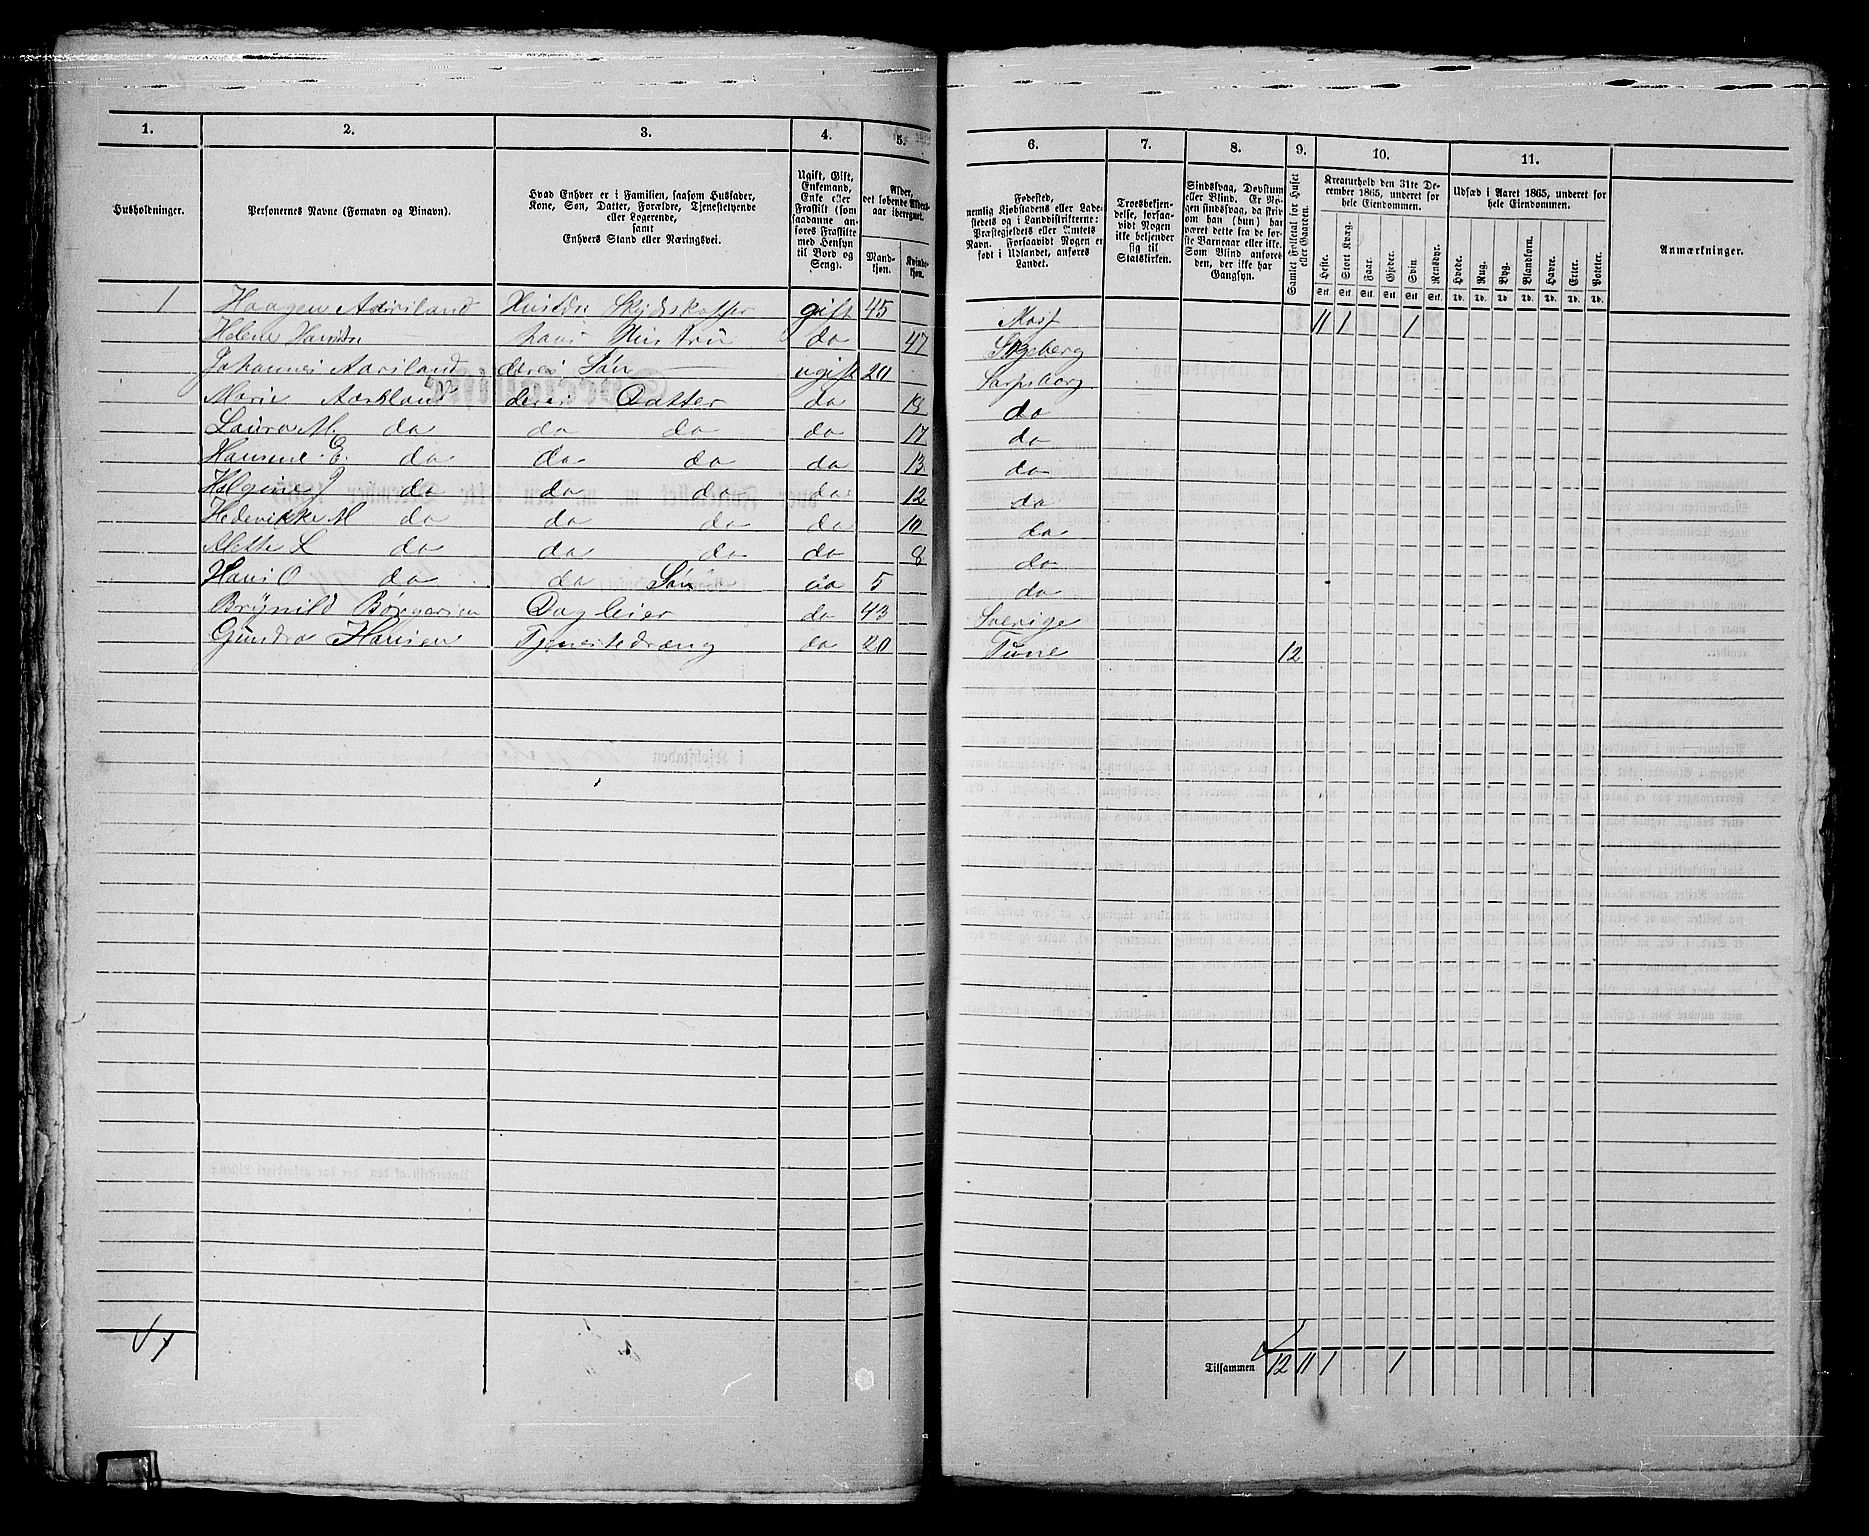 1. 2. 3. 4. 5. 6. 7. 8. 9. 10. 11.
Husholdninger.
Personernes Navne (Fornavn og Binavn).
Hvad Enhver er i Familien, saasom Husfader,
Kone, Søn, Datter, Forældre, Tjenestetyende
eller Logerende,
samt
Enhvers Stand eller Næringsvei.
Ugift, Gift,
Enkemand,
Enke eller
Fraskilt (som
saadanne an-
føres Fraskilte
med Hensyn
til Bord og
Seng).
Alder,
det løbende Alders-
aar iberegnet.
Mand-
kjøn.
Kvinde-
kjøn.
Fødested,
nemlig Kjøbstadens eller Lade-
stedets og i Landdistrikterne:
Præstegjeldets eller Amtets
Navn. Forsaavidt Nogen er
født i Udlandet, anføres
Landet.
Troesbekjen-
delse, forsaa-
vidt Nogen
ikke bekjender
sig til
Statskirken.
Sindssvag, Døvstum
eller Blind. Er No-
gen sindssvag, da skri-
ves om han (hun) har
været det fra de før-
ste Barneaar eller ikke.
Som Blind anføres
den, der ikke har
Gangsyn.
Samlet Folketal for Huset
eller Gaarden.
Kreaturhold den 31te De-
cember 1865, underet for
hele Eiendommen.
Heste. Stort Kvæg. Faar. Gjeder. Svin. Rensdyr.
Stk. Stk. Stk. Stk. Stk. Stk.
Udsæd i Aaret 1865, underet for
hele Eiendommen.
Hvede. Rug. Byg. Blandkorn. Havre. Erter. Poteter.
Td. Td. Td. Td. Td. Td. Td.
Anmærkninger.
1 Haagen Aarsland Huseier Skydsskaffer gift 45 Moss 11 1 1
Helene Hansdr hans Hustru do 47 Skjeberg
Johannes Aarsland deres Søn ugift 20 Sarpsborg
Marie Aarsland deres Datter do 18 do
Laura M. do do do do 17 do
Hansine E. do do do do 13 do
Helgine J do do do do 12 do
Hedevikke M do do do do 10 do
Mette L do do do do 8 do
Hans O do do Søn do 5 do
Brynild Børgersen Dagleier do 43 Sverige
Hansen Tjenestedreng do 20 Tune 12
Tilsammen 12 11 1 1